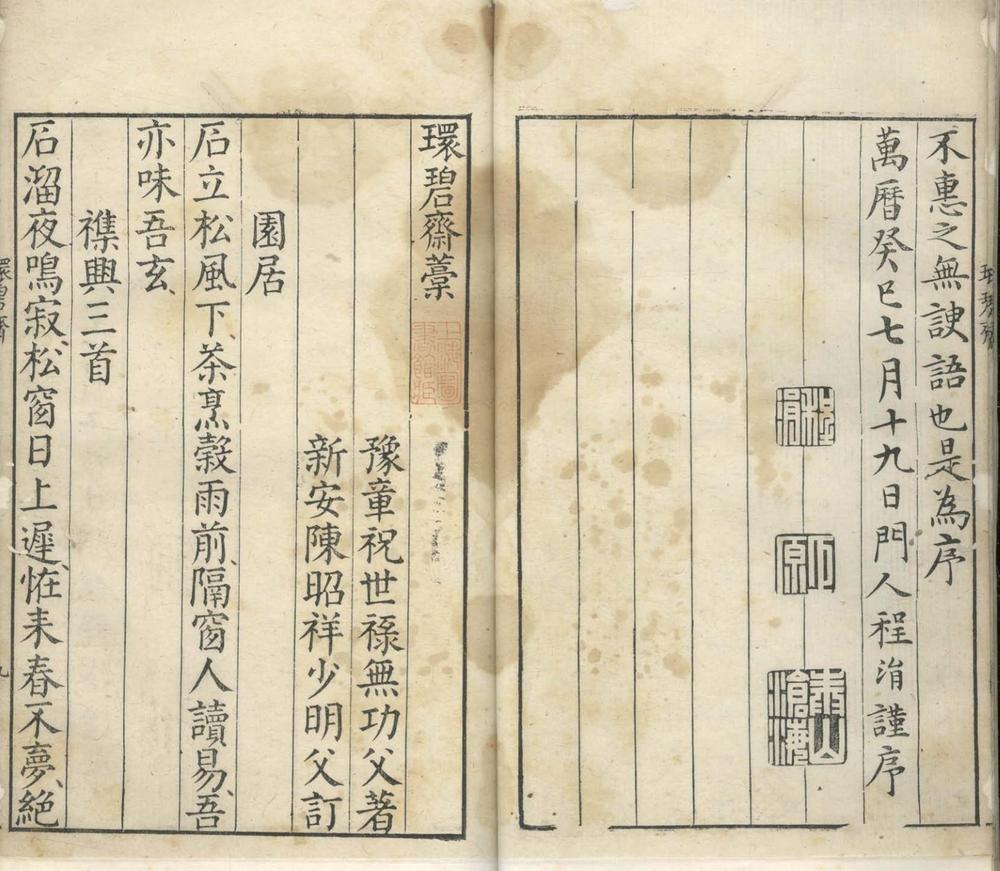 不惠之無諛語也是為序
萬曆癸巳七月十九日門人程涓謹序
程涓
巨源
泰山滄海
環碧齋
環碧齋藁
豫章祝世祿無功父著
新安陳昭祥少明父訂
園居
石立松風下茶烹穀雨前隔窗人讀易吾
亦味吾玄
襍興三首
石溜夜鳴寂松窗日上遲怪来春不夢絕
環碧齋
九